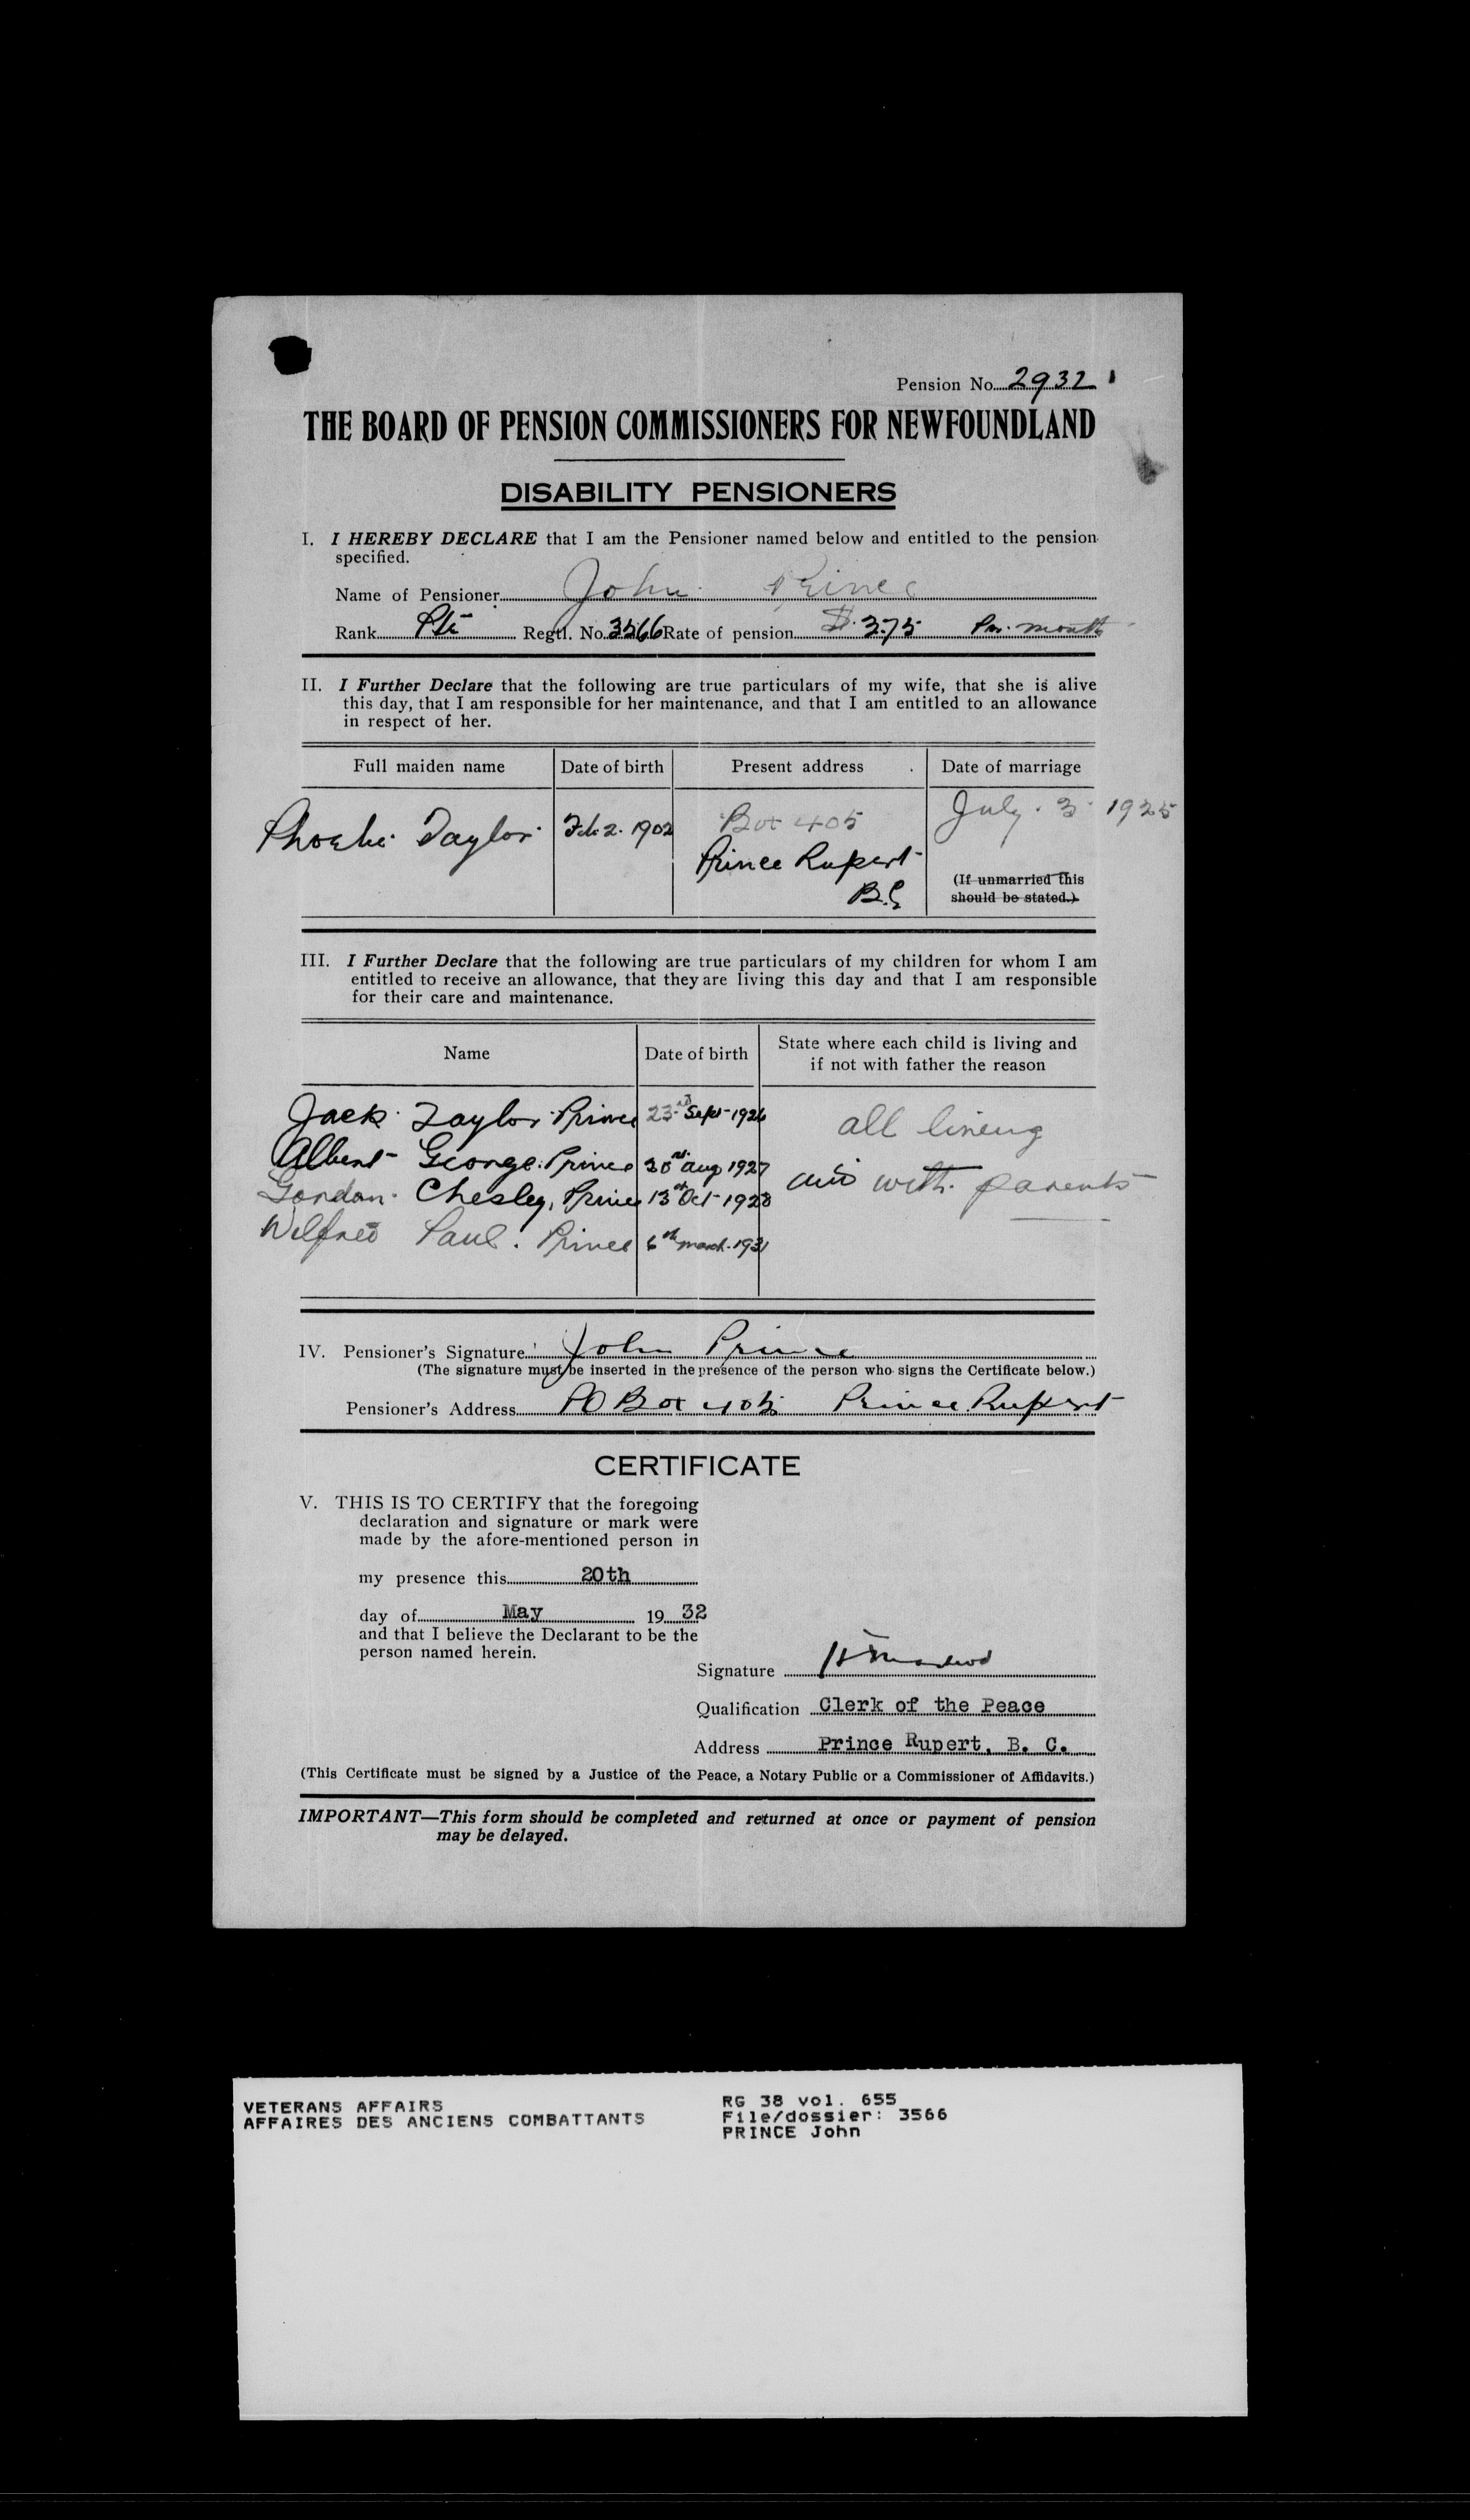 Pension No. 2932
THE BOARD OF PENSION COMMISSIONERS FOR NEWFOUNDLAND
DISABILITY PENSIONERS
I. I HEREBY DECLARE that I am the Pensioner named below and entitled to the pension
specified.
Name of Pensioner John Prince
Rank Pte Regtl. No. 3566 Rate of pension $3.75 Per. month
II. I Further Declare that the following are true particulars of my wife, that she is alive
this day, that I am responsible for her maintenance, and that I am entitled to an allowance
in respect of her.
Full maiden name Date of birth Present address Date of marriage
Phoebe Taylor Feb. 2. 1902 Box 405 July. 3 1925
Prince Rupert
B.C
(If unmarried this
should be stated.)
III. I Further Declare that the following are true particulars of my children for whom I am
entitled to receive an allowance, that they are living this day and that I am responsible
for their care and maintenance.
Name Date of birth State where each child is living and
if not with father the reason
Jack Taylor Prince 23rd Sept 1926 all living
Albert George Prince Aug 1927 with parents
Gordon Chesley, Prince 13th Oct 1928
Wilfred Paul. Prince 6th march 1931
IV. Pensioner's Signature John Prince
(The signature must be inserted in the presence of the person who signs the Certificate below.)
Pensioner's Address PO Box 405 Prince Rupert
CERTIFICATE
V. THIS IS TO CERTIFY that the foregoing
declaration and signature or mark were
made by the afore-mentioned person in
my presence this 20th
day of May 19 32
and that I believe the Declarant to be the
person named herein.
Signature
Qualification Clerk of the Peace
Address Prince Rupert, B. C.
(This Certificate must be signed by a Justice of the Peace, a Notary Public or a Commissioner of Affidavits.)
IMPORTANT—This form should be completed and returned at once or payment of pension
may be delayed.
VETERANS AFFAIRS RG 38 vol. 655
AFFAIRES DES ANCIENS COMBATTANTS File/dossier: 3566
PRINCE John